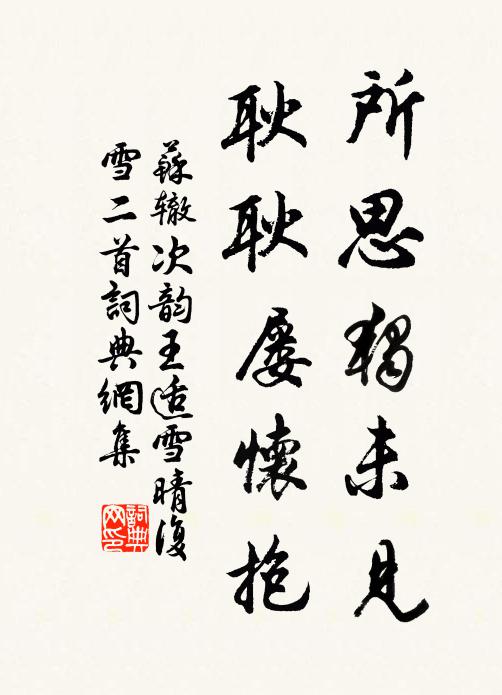 所思獨未見
耿耿屡懷抱
蘇辙次韵王适雪晴復
雪二首詞典網集
詞典网印